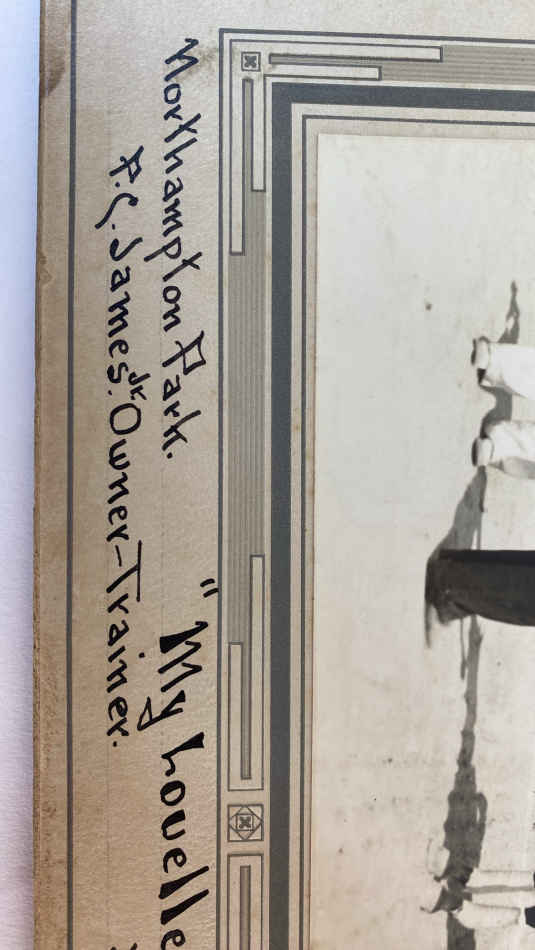 Northampton Park. "My Louelle
P.G. James. Jr Owner-Trainer.